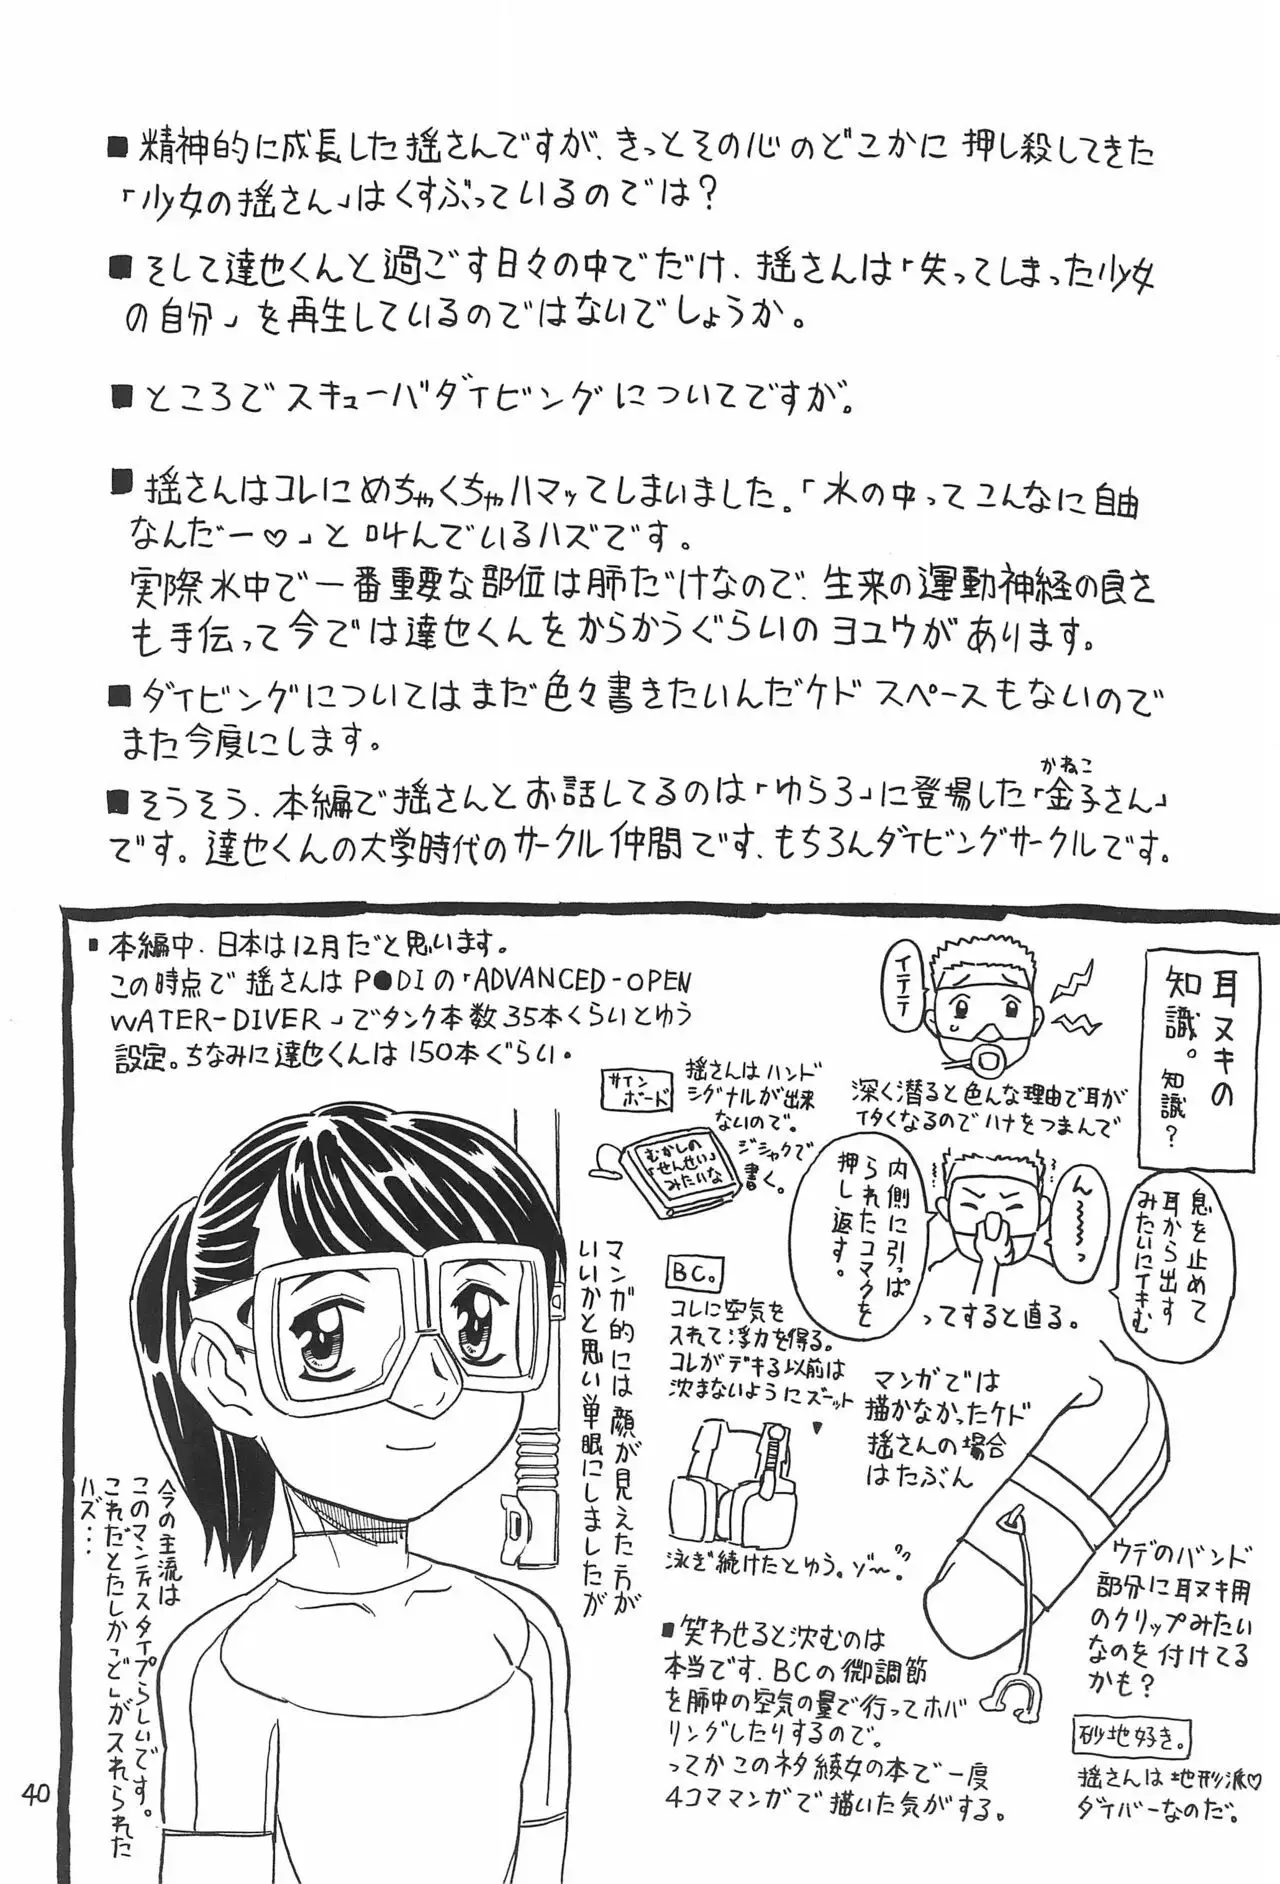 ■精神的に成長した揺さんですが、きっとその心のどこかに押し殺してきた
「少女の揺さん」はくすぶっているのでは？
■そして達也くんと過ごす日々の中でだけ、揺さんは「失ってしまった少女
の自分」を再生しているのではないでしょうか。
■ところでスキューバダイビングについてですが。
■揺さんはコレにめちゃくちゃハマッてしまいました。「水の中ってこんなに自由
なんだー♡」と叫んでいるハズです。
実際水中で一番重要な部位は肺だけなので、生来の運動神経の良さ
も手伝って今では達也くんをからかうぐらいのヨユウがあります。
■ダイビングについてはまだ色々書きたいんだケド スペースもないので
また今度にします。
かねこ
■そうそう、本編で揺さんとお話してるのは「ゆらろ」に登場した「金子さん」
です。達也くんの大学時代のサークル仲間です、もちろんダイビングサークルです。
■本編中、日本は12月だと思います。
この時点で揺さんはP●DIの「ADVANCED-OPEN
WATER-DIVER」でタンク本数35本くらいとゆう
設定。ちなみに達也くんは150本ぐらい。
耳ヌキの
知識。知識？
イテテテ
深く潜ると色んな理由で耳が
イタくなるのでハナをつまんで
息を止めて
耳から出す
みたいにイキむ
ん〜〜〜っ
内側に引っぱ
られたコマクを
押し返す。
ってすると直る。
サイン
ボード
揺さんはハンド
シグナルが出来
ないので。
ジシャクで
書く。
むかしの
「せんせい」
みたいな
BC。
コレに空気を
入れて浮力を得る。
コレがデキる以前は
沈まないようにズーット
泳ぎ続けたとゆう。ゾ〜。
マンガでは
描かなかったケド
揺さんの場合
はたぶん
ウデのバンド
部分に耳ヌキ用
のクリップみたい
なのを付けてる
かも？
マンガ的には顔が見えた方が
いいかと思い単眼にしましたが
今の主流は
このマンティスタイプらしいです。
これだとたしか「ど」が入れられた
ハズ・・・
■笑わせると沈むのは
本当です、BCの微調節
を肺中の空気の量で行ってホバ
リングしたりするので。
ってかこのネタ綾女の本で一度
4コママンガで描いた気がする。
砂地好き。
揺さんは地形派♡
ダイバーなのだ。
40